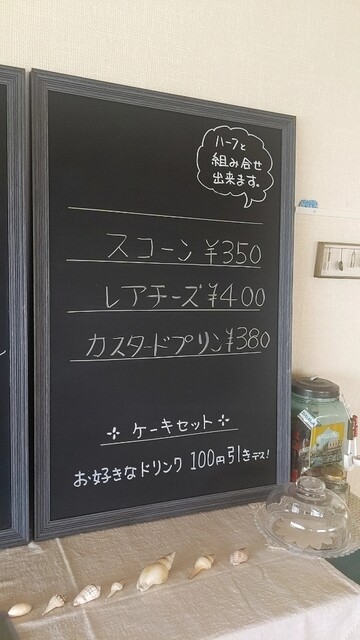 ハーフと
組み合せ
出来ます。
スコーン ¥350
レアチーズ ¥400
カスタードプリン ¥380
ケーキセット
お好きなドリンク 100円引きデス!